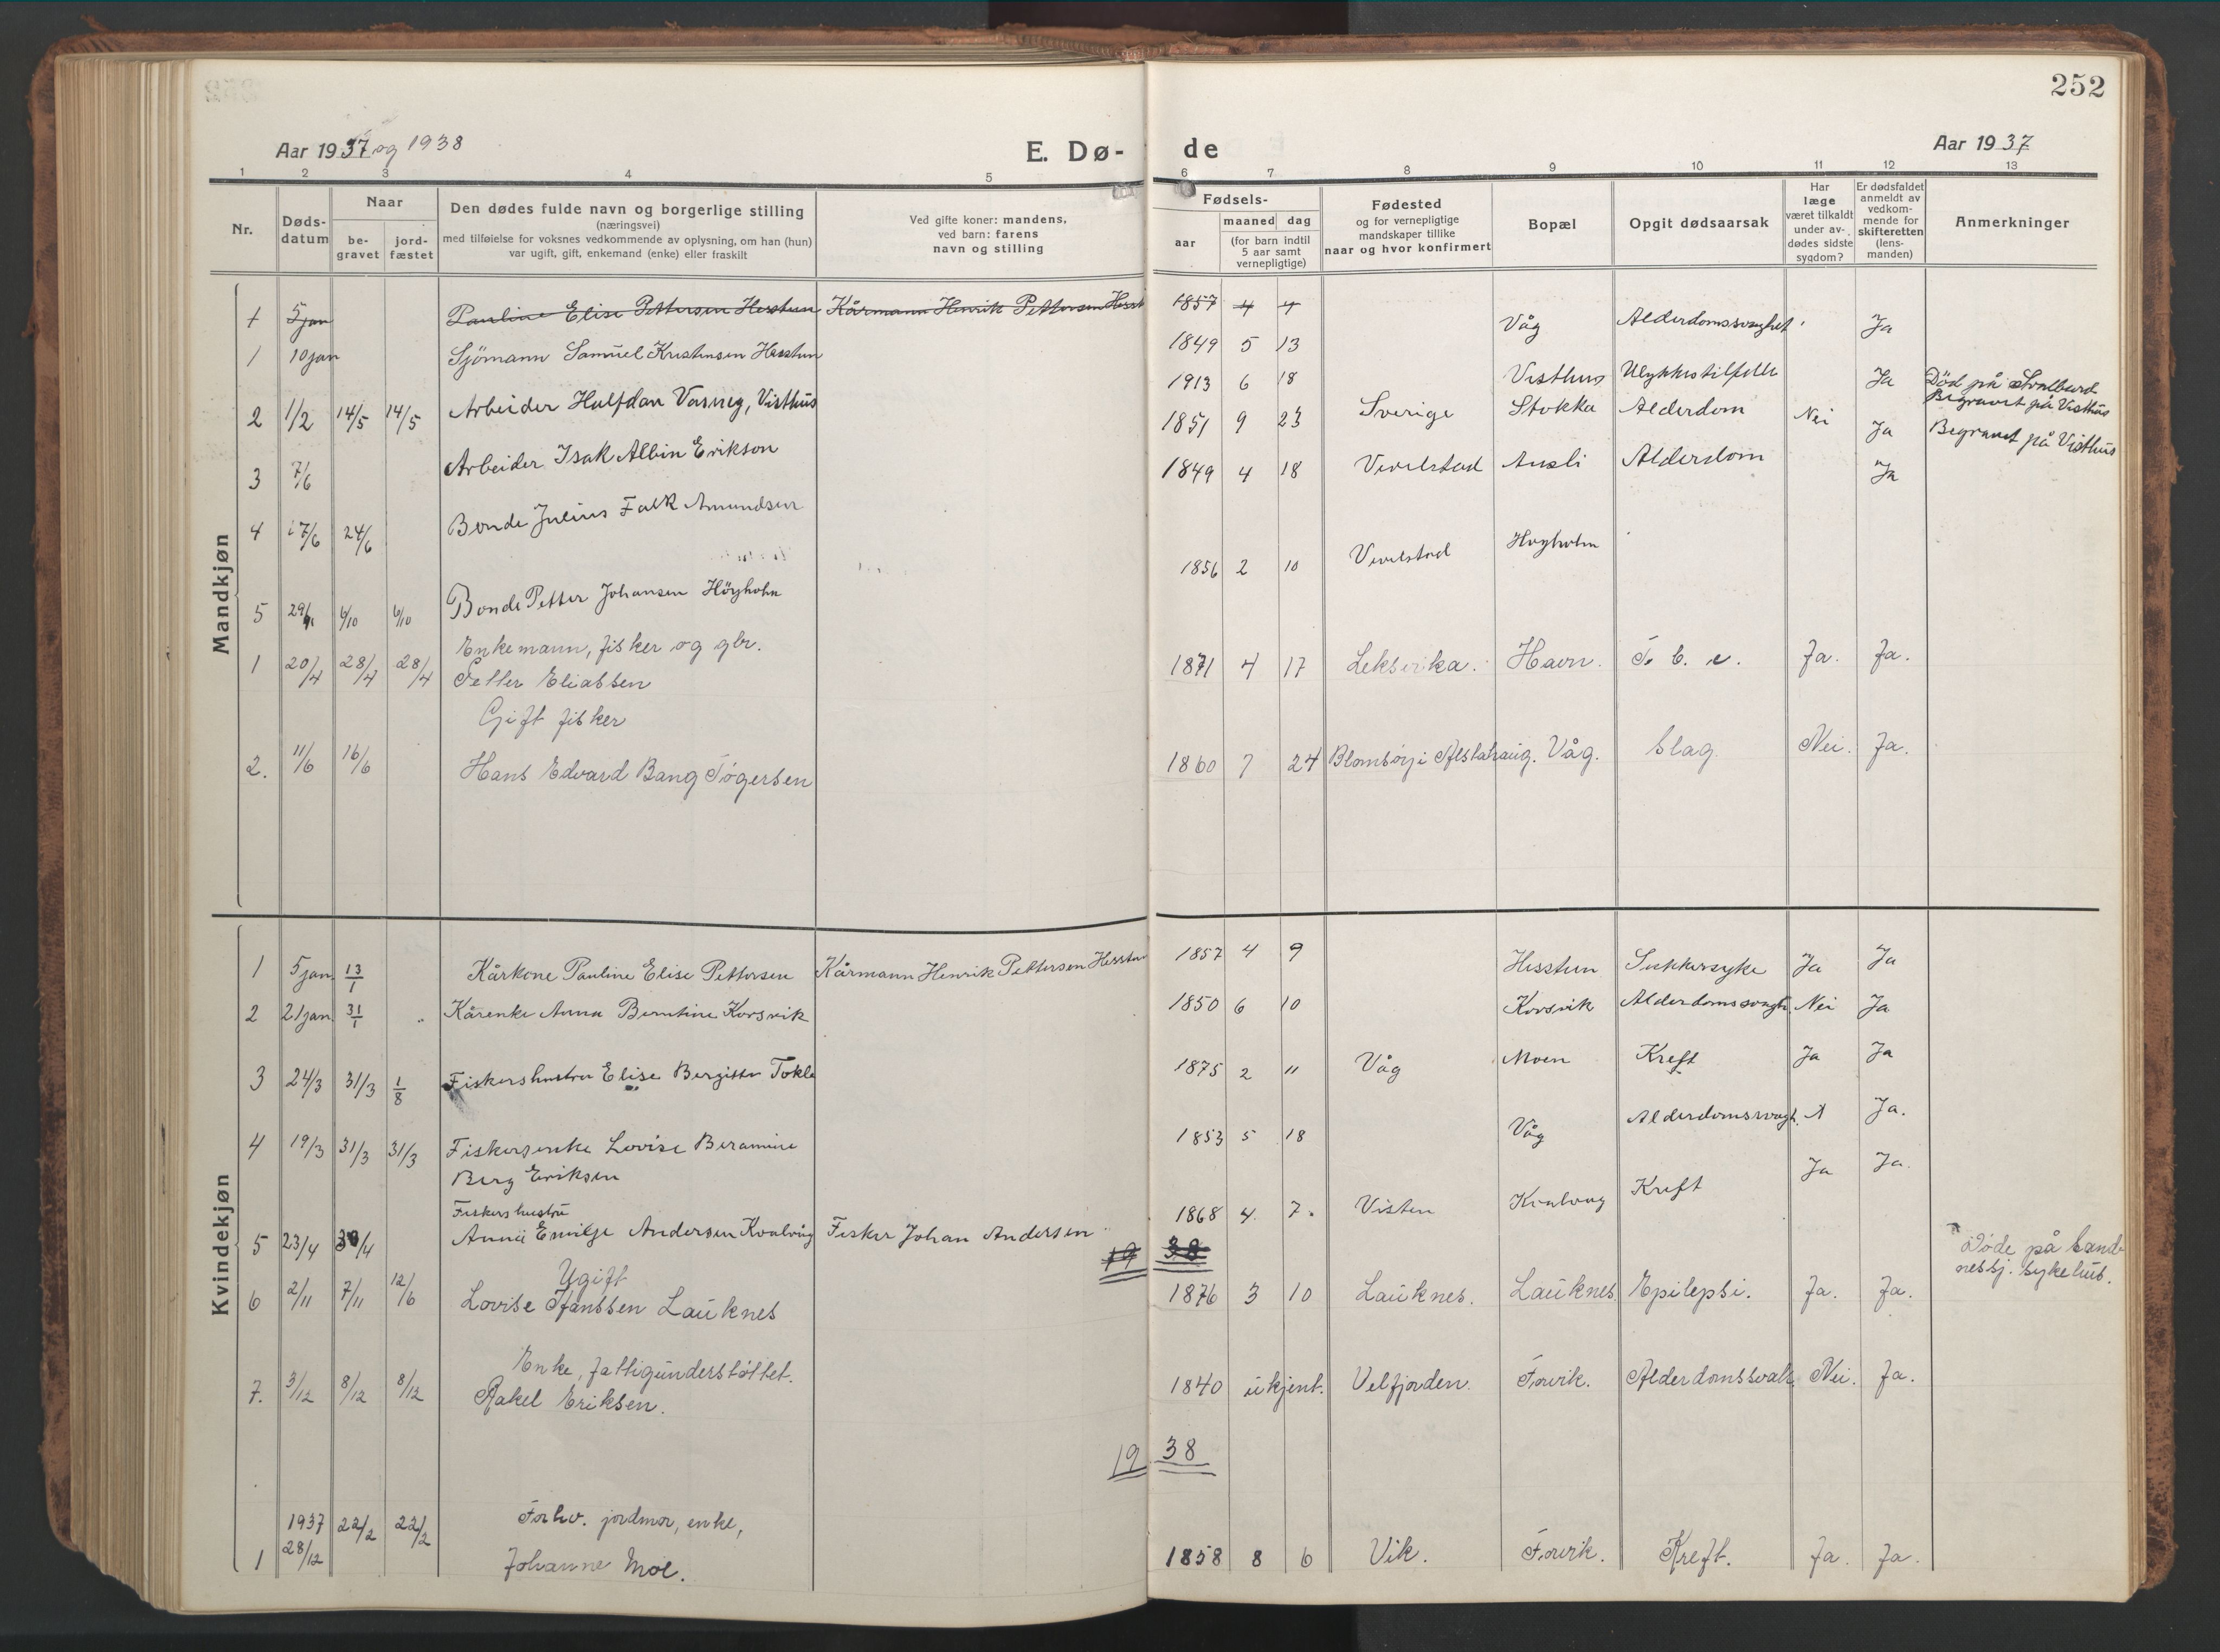 252
Aar 1937 og 1938
E. Dø-
de
Aar 1937
1 2 3 4 5
6 7 8 9 10 11 12 13
Nr.
Døds-
datum
Naar
be-
gravet
jord-
fæstet
Den dødes fulde navn og borgerlige stilling
(næringsvei)
med tilføielse for voksnes vedkommende av oplysning, om han (hun)
var ugift, gift, enkemand (enke) eller fraskilt
Ved gifte koner: mandens,
ved barn: farens
navn og stilling
Fødsels-
aar
maaned dag
(for barn indtil
5 aar samt
vernepligtige)
Fødested
og for vernepligtige
mandskaper tillike
naar og hvor konfirmert
Bopæl
Opgit dødsaarsak
Har
læge
været tilkaldt
under av-
dødes sidste
sygdom?
Er dødsfaldet
anmeldt av
vedkom-
mende for
skifteretten
(lens-
manden)
Anmerkninger
Mandkjøn
1 5 jan Pauline Elise Pettersen Hesstun Kårmann Henrik Pettersen Hesst 1857 4
1 10 jan Sjömann Samuel Kristensen Hesstun 1849 5 13 Våg Alderdomssvaghet Ja
2 1/2 14/5 14/5 Arbeider Halfdan Vasneg, Visthus 1913 6 18 Visthus Ulykkestilfelle Ja Död på Svalbard
Begravet på Visthus
3 7/6 Arbeider Isak Albin Erikson 1851 9 23 Sverige Stokka Alderdom Nei Ja Begravet på Visthus
4 17/6 24/6 Bonde Julius Falk Amundsen 1849 4 18 Vevelstad Ausli Alderdom Ja
5 29/ 6/10 6/10 Bonde Petter Johansen Höyholm 1856 2 10 Vevelstad Høyholm
Enkemann, fisker og gbr.
1 20/4 28/4 28/4 Petter Eliassen 1871 4 17 Leksvika. Havn. T. b. c. Ja. Ja.
Gift fisker
2. 11/6 16/6 Hans Edvard Bang Tögersen 1860 7 24 Blomsöy i Alstahaug. Våg. Slag. Nei. Ja.
Kvindekjøn
1 5 jan 13/1 Kårkone Pauline Elise Pettersen Kårmann Henrik Pettersen Hesstun 1857 4 9 Hesstun Sukkersyke Ja Ja
2 21 jan 31/1 " Kårenke Anna Berntine Korsvik 1850 6 10 Korsvik Alderdomssvagh. Nei Ja
3 24/3 31/3 1/8 Fiskershustru Elise Bergitta Tokle 1875 2 11 Våg Moen Kreft Ja Ja
4 19/3 31/3 31/3 Fiskersenke Lovise Beramine
Berg Eriksen 1853 5 18 Våg Alderdomssvagh. Ja.
Fiskers hustru
5 23/4 30/4 Anna Emilje Andersen Kvalvåg Fisker Johan Andersen 1868 4. 7. Visten Kvalvåg Kreft Ja Ja.
19 38
Ugift
6 2/11 7/11 12/6 Lovise Hanssen Lauknes 1876 3 10 Lauknes. Lauknes. Epilepsi. Ja. Ja. Döde på Sand-
nessj. sykehus.
Enke, fattigunderstöttet.
7. 3/12 8/12 8/12 Rakel Eriksen. 1840 ukjent. Velfjorden. Forvik. Alderdomssvakh. Nei. Ja.
19 38
1937 22/2 22/2 Forhv. jordmor, enke,
1 28/12 Johanne Moe. 1858 8 6 Vik. Forvik. Kreft. Ja. Ja.